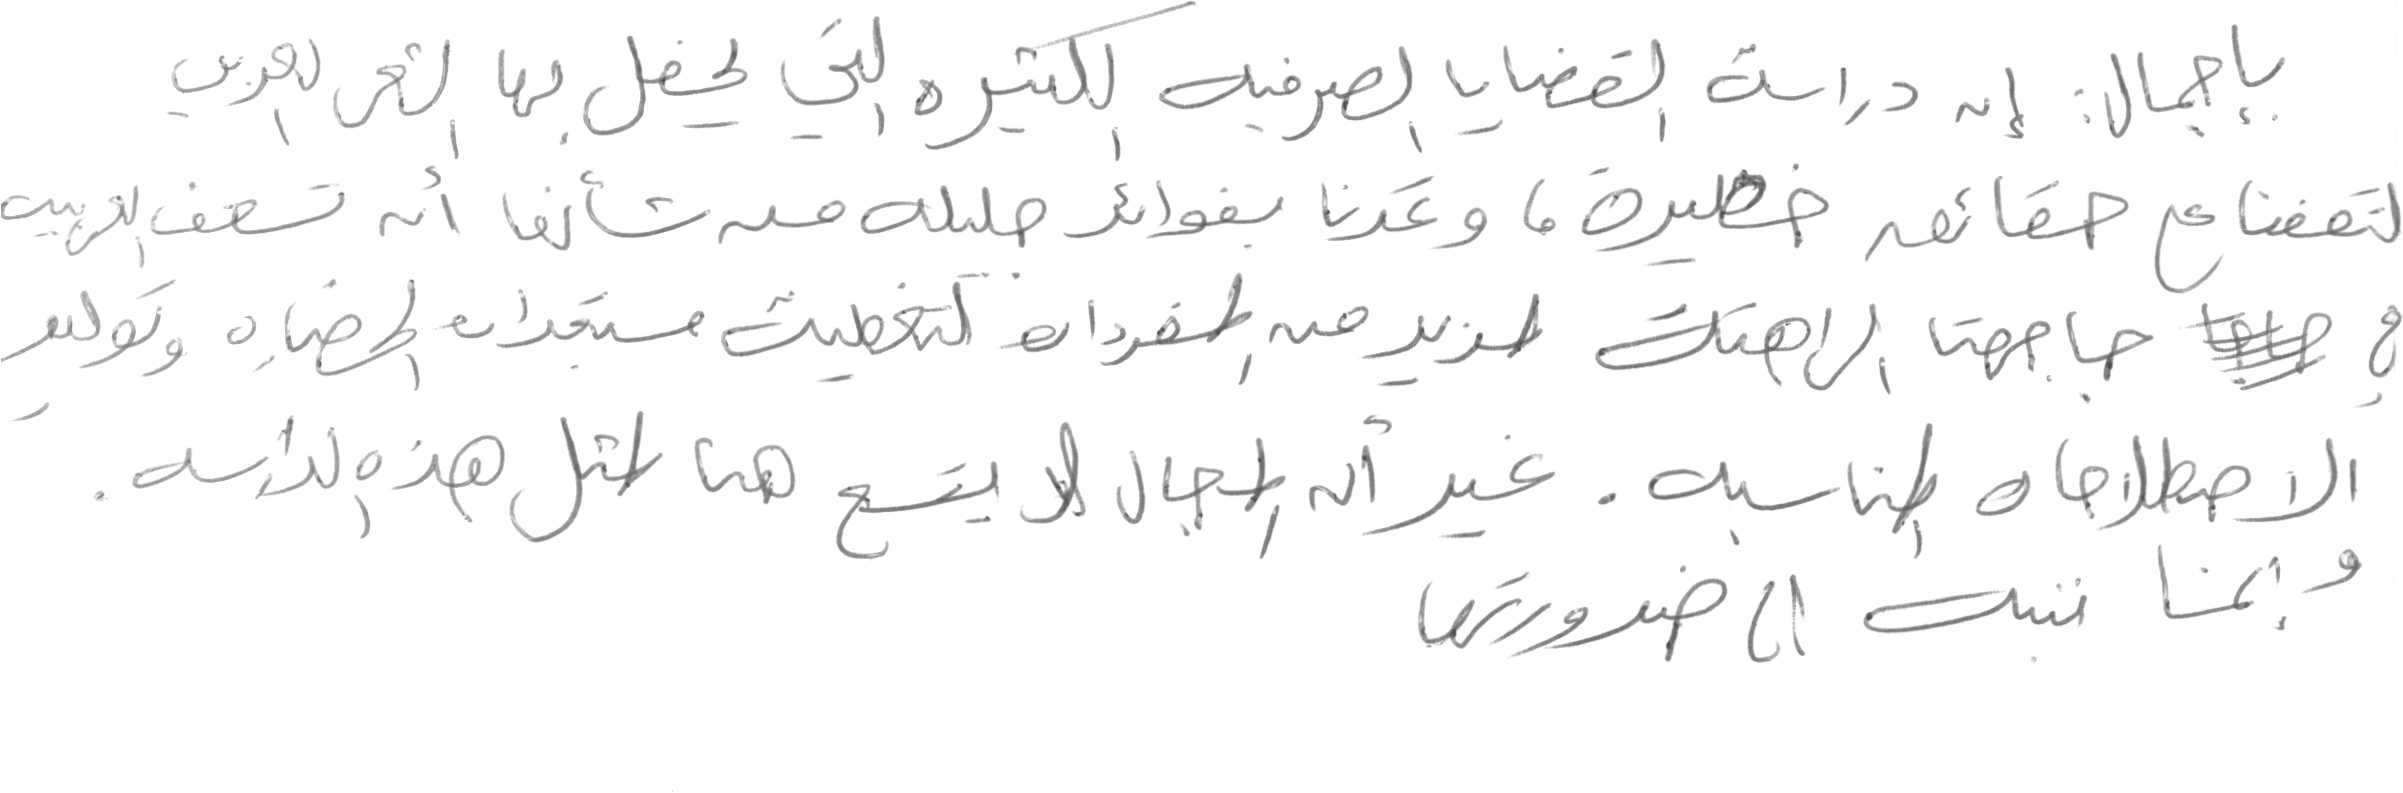 بإجمال: إن دراسة القضايا الصرفية الكثيره التي يحفل بها الشعر العربي
لتقفنا على حقائق خطيرة، وتمدنا بفوائد جليله من شأنها أن تسعف العربيه
في حاجتها الراهنة لمزيد من المفردات لتغطية مستجدات الحضاره وتوليد
الاصطلاحات المناسبه. غير أن المجال لا يتسع هنا لمثل هذه الدراسه.
وإنما ننبه الى ضرورتها